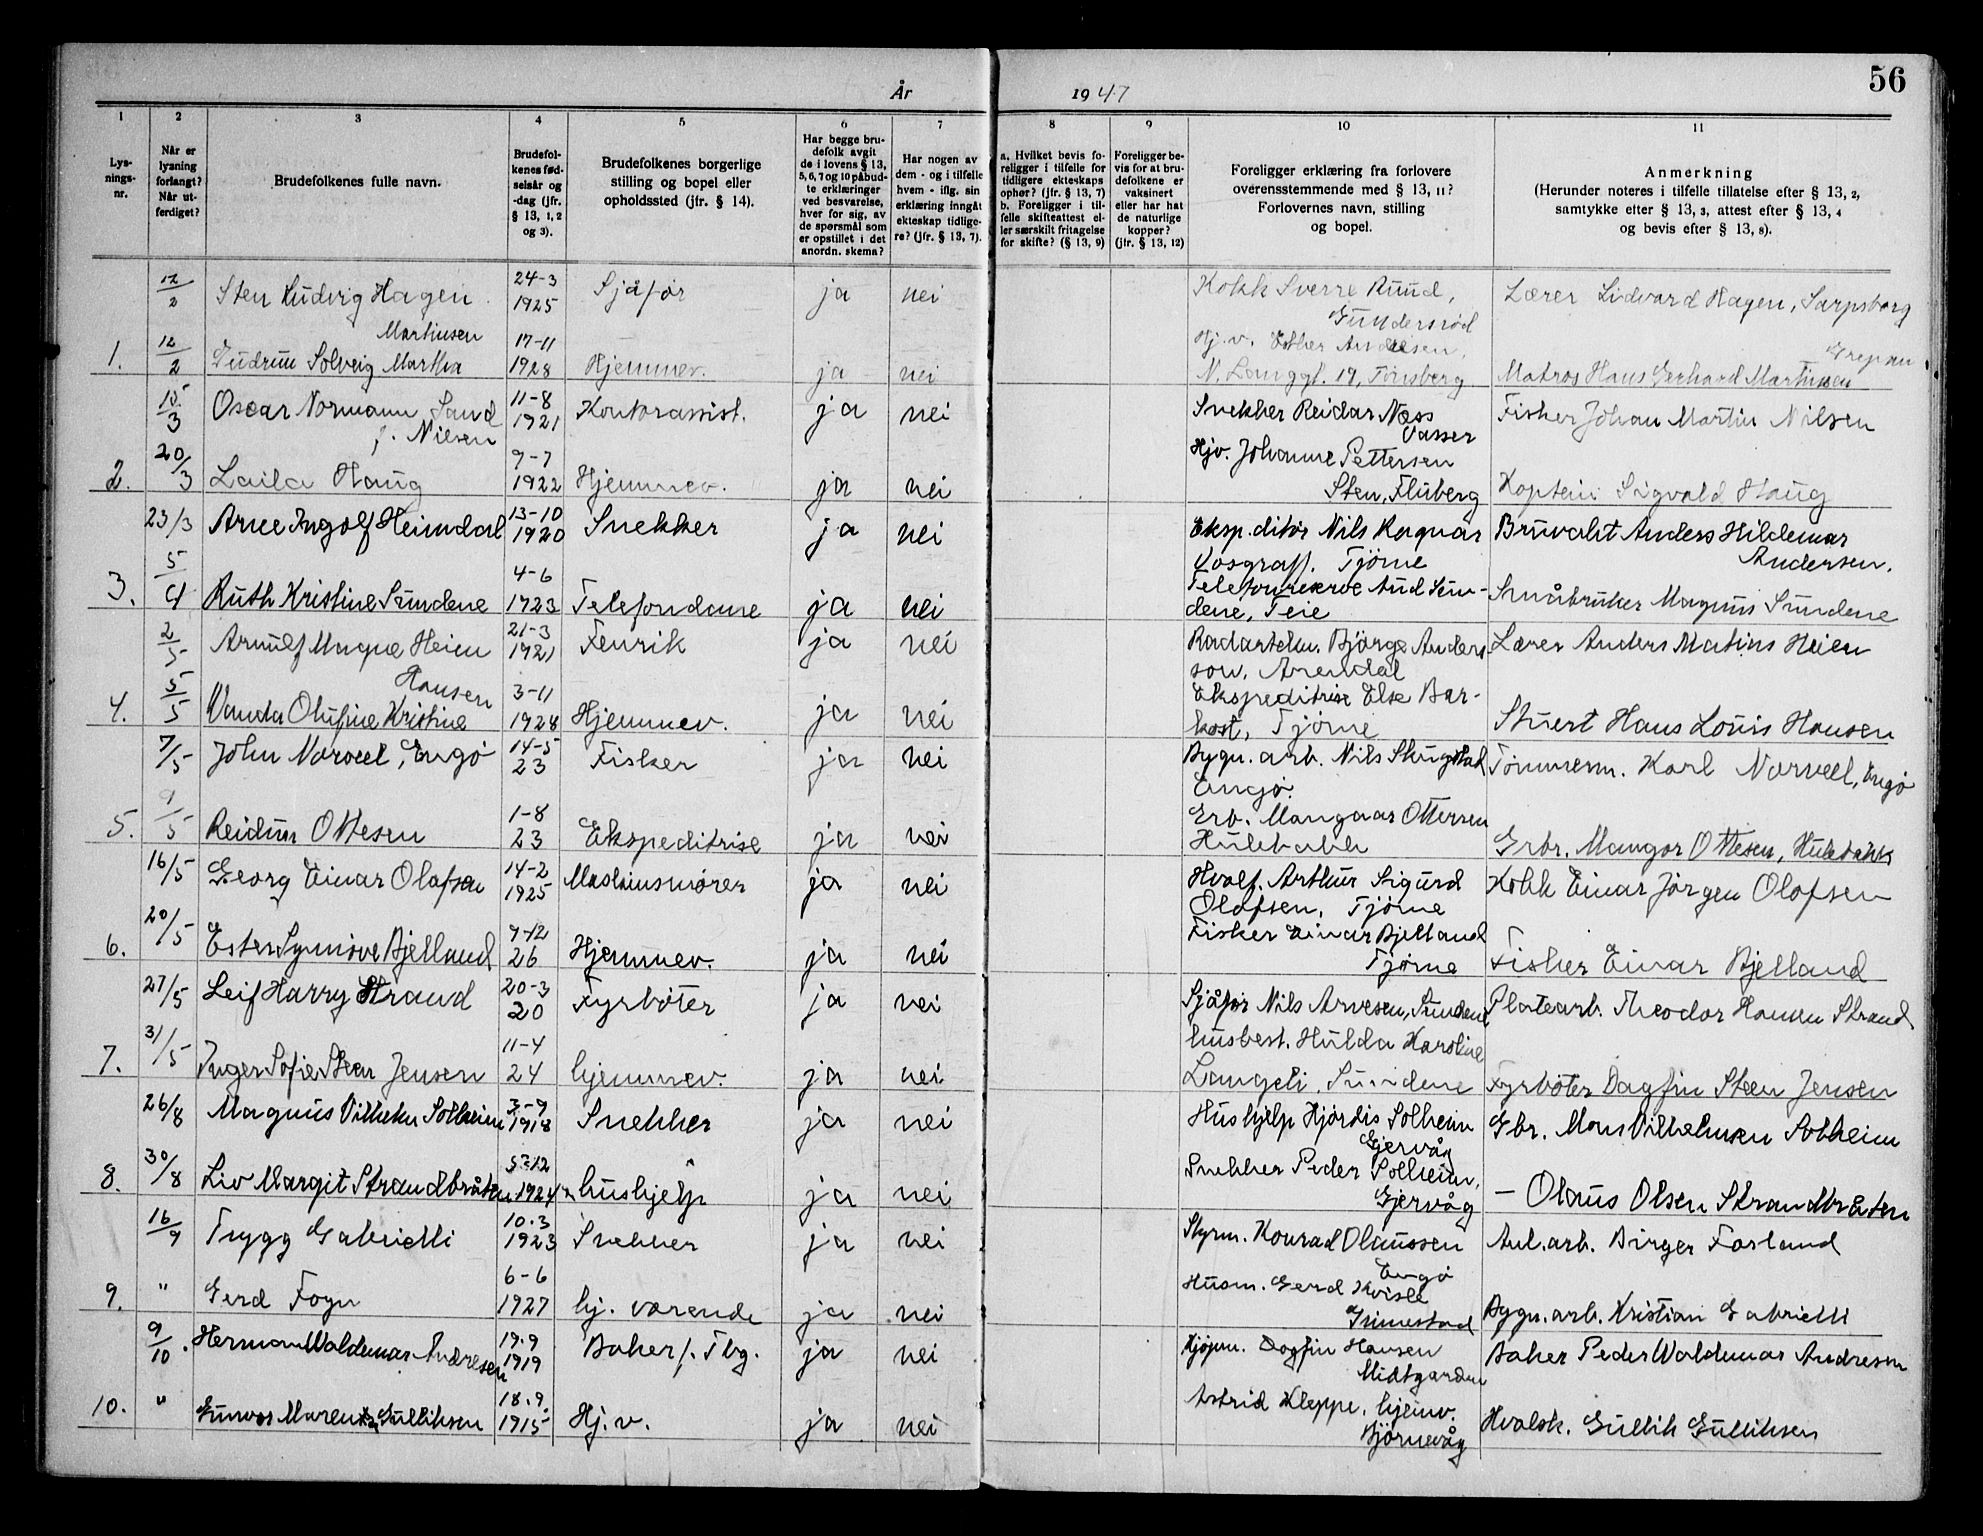 56
År 1947
1
2
3
4
5
6
7
8
9
10
11
Lys-
nings-
nr.
Når er
lysning
forlangt?
Når ut-
ferdiget?
Brudefolkenes fulle navn.
Brudefol-
kenes fød-
selsår og
-dag (jfr.
§ 13, 1, 2
og 3).
Brudefolkenes borgerlige
stilling og bopel eller
opholdssted (jfr. § 14).
Har begge bru-
defolk avgit
de i lovens § 13,
5, 6, 7 og 10 påbud-
te erklæringer
ved besvarelse,
hver for sig, av
de spørsmål som
er opstillet i det
anordn. skema?
Har nogen av
dem - og i tilfelle
hvem - iflg. sin
erklæring inngått
ekteskap tidlige-
re? (jfr. § 13, 7).
a. Hvilket bevis fo-
religger i tilfelle for
tidligere ekteskaps
ophør? (jfr. § 13, 7)
b. Foreligger i til-
felle skifteattest el-
ler særskilt fritagelse
for skifte? (§ 13, 9)
Foreligger be-
vis for at bru-
defolkene er
vaksinert
eller har hat
de naturlige
kopper?
(jfr. § 13, 12)
Foreligger erklæring fra forlovere
overensstemmende med § 13, 11?
Forlovernes navn, stilling
og bopel.
Anmerkning
(Herunder noteres i tilfelle tillatelse efter § 13, 2,
samtykke efter § 13, 3, attest efter § 13, 4
og bevis efter § 13, 8).
12/2 Sten Ludvig Hagen 24-3 1925 Sjåfør ja nei Kokk Sverre Ruud, Gundersrød Lærer Lidvard Hagen, Sarpsborg
1. 12/2 Gudrun Solveig Martha Martinsen 17-11 1928 Hjemmev. ja nei Hj.v. Esther Andersen, N. Langgt. 19, Tønsberg Matros Hans Gerhard Martinsen Grepan
15/3 Oscar Normann Sand f. Nilsen 11-8 1921 Kontorassist. ja nei Snekker Reidar Næss Vasser Fisker Johan Martin Nilsen
2. 20/3 Laila Haug 9-7 1922 Hjemmev. ja nei Hjv. Johanne Pettersen Sten, Fluberg Kaptein Sigvald Haug
23/3 Arne Ingolf Heimdal 13-10 1920 Snekker ja nei Eksp.ditør Nils Ragnar Vosgraff, Tjøme Bruvakt Anders Hildemar Andersen.
3. 5/4 Ruth Kristine Sundene 4-6 1923 Telefondame ja nei Aud Sun-dene, Teie Småbruker Magnus Sundene
2/5 Arnulf Magne Heien 21-3 1921 Fenrik ja nei Radartekn. Bjørge Anders-son, Arendal Lærer Anders Matius Heien
4. 5/5 Vanda Olufine Kristine Hansen 3-11 1928 Hjemmev. ja nei Ekspeditrise Else Bar-kost, Tjøme Stuert Hans Louis Hansen
7/5 John Norvell, Engø 14-5 23 Fisker ja nei Bygn. arb. Nils Skugstad Engø. Tømmerm. Karl Norvell, Engø
5. 9/5 Reidun Ottesen 1-8 23 Ekspeditrise ja nei Grb. Mangaar Ottersen Hulebakk Grbr. Mangor Ottesen, Hulebakk
16/5 Georg Einar Olafsen 14-2 1925 Maskinsmører ja nei Hvalf. Arthur Sigurd Olafsen, Tjøme Kokk Einar Jørgen Olofsen
6. 20/5 Ester Synnøve Bjelland 9-12 26 Hjemmev. ja nei Fisker Einar Bjelland Tjøme Fisker Einar Bjelland
27/5 Leif Harry Strand 20-3 20 Fyrbøter ja nei Sjåfør Nils Arnesen, Sundene Platearb. Theodor Hansen Strand
7. 31/5 Inger Sofie Steen Jensen 11-4 24 hjemmev. ja nei husbest. Hulda Karoline Langeli, Sundene Fyrbøter Dagfin Steen Jensen
26/8 Magnus Vilhelm Solheim 3-9 1918 Snekker ja nei Hushjelp Hjørdis Solheim Gjervåg Gbr. Mons Vilhelmsen Solheim
8. 30/8 Liv Margit Strandbråten 5-12 1924 hushjelp ja nei Snekker Peder Solheim, Gjervåg — Olaus Olsen Strandbråten
16/9 Trygg Gabrielli 10.3 1923 Snekker ja nei Styrm. Konrad Olaussen Engø Anl.arb. Birger Forland
9. " Gerd Fogn 6-6 1927 hj. værende ja nei Husm. Gerd Kvisle Grimestad Bygn.arb. Kristian Gabrielli
9/10. Herman Waldemar Andresen 19.9 1919 Baker f. Tbg. ja nei Kjøpm. Dagfin Hansen Midtgarden Baker Peder Waldemar Andresen
10. " Gunvor Maren Gulliksen 18.9. 1915 Hj.v. ja nei Astrid Kleppe, hjemv. Bjørnevåg Hvalsk. Gullik Gulliksen